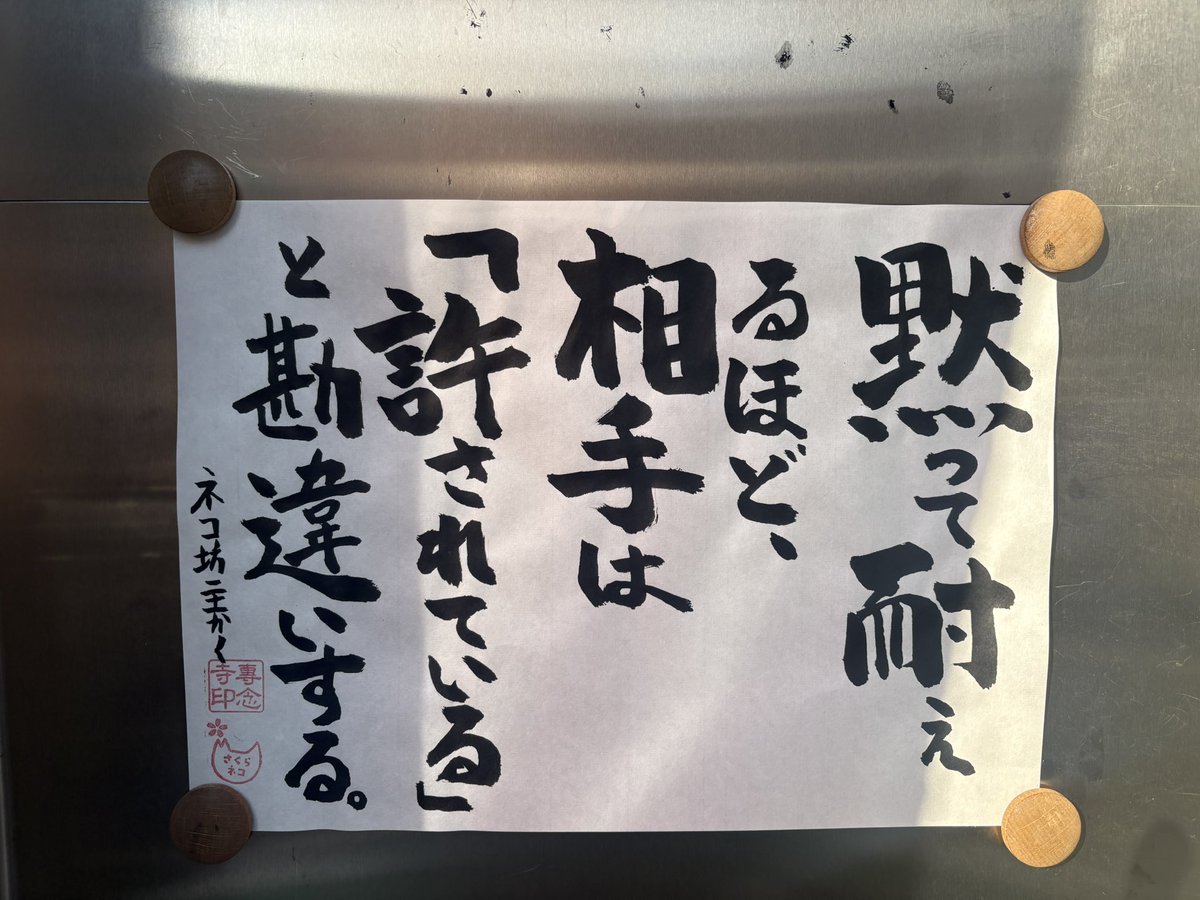 黙って耐え
るほど、
相手は
「許されている」
と勘違いする。
ネコ坊主かく
專念
寺印
さくら
ネコ